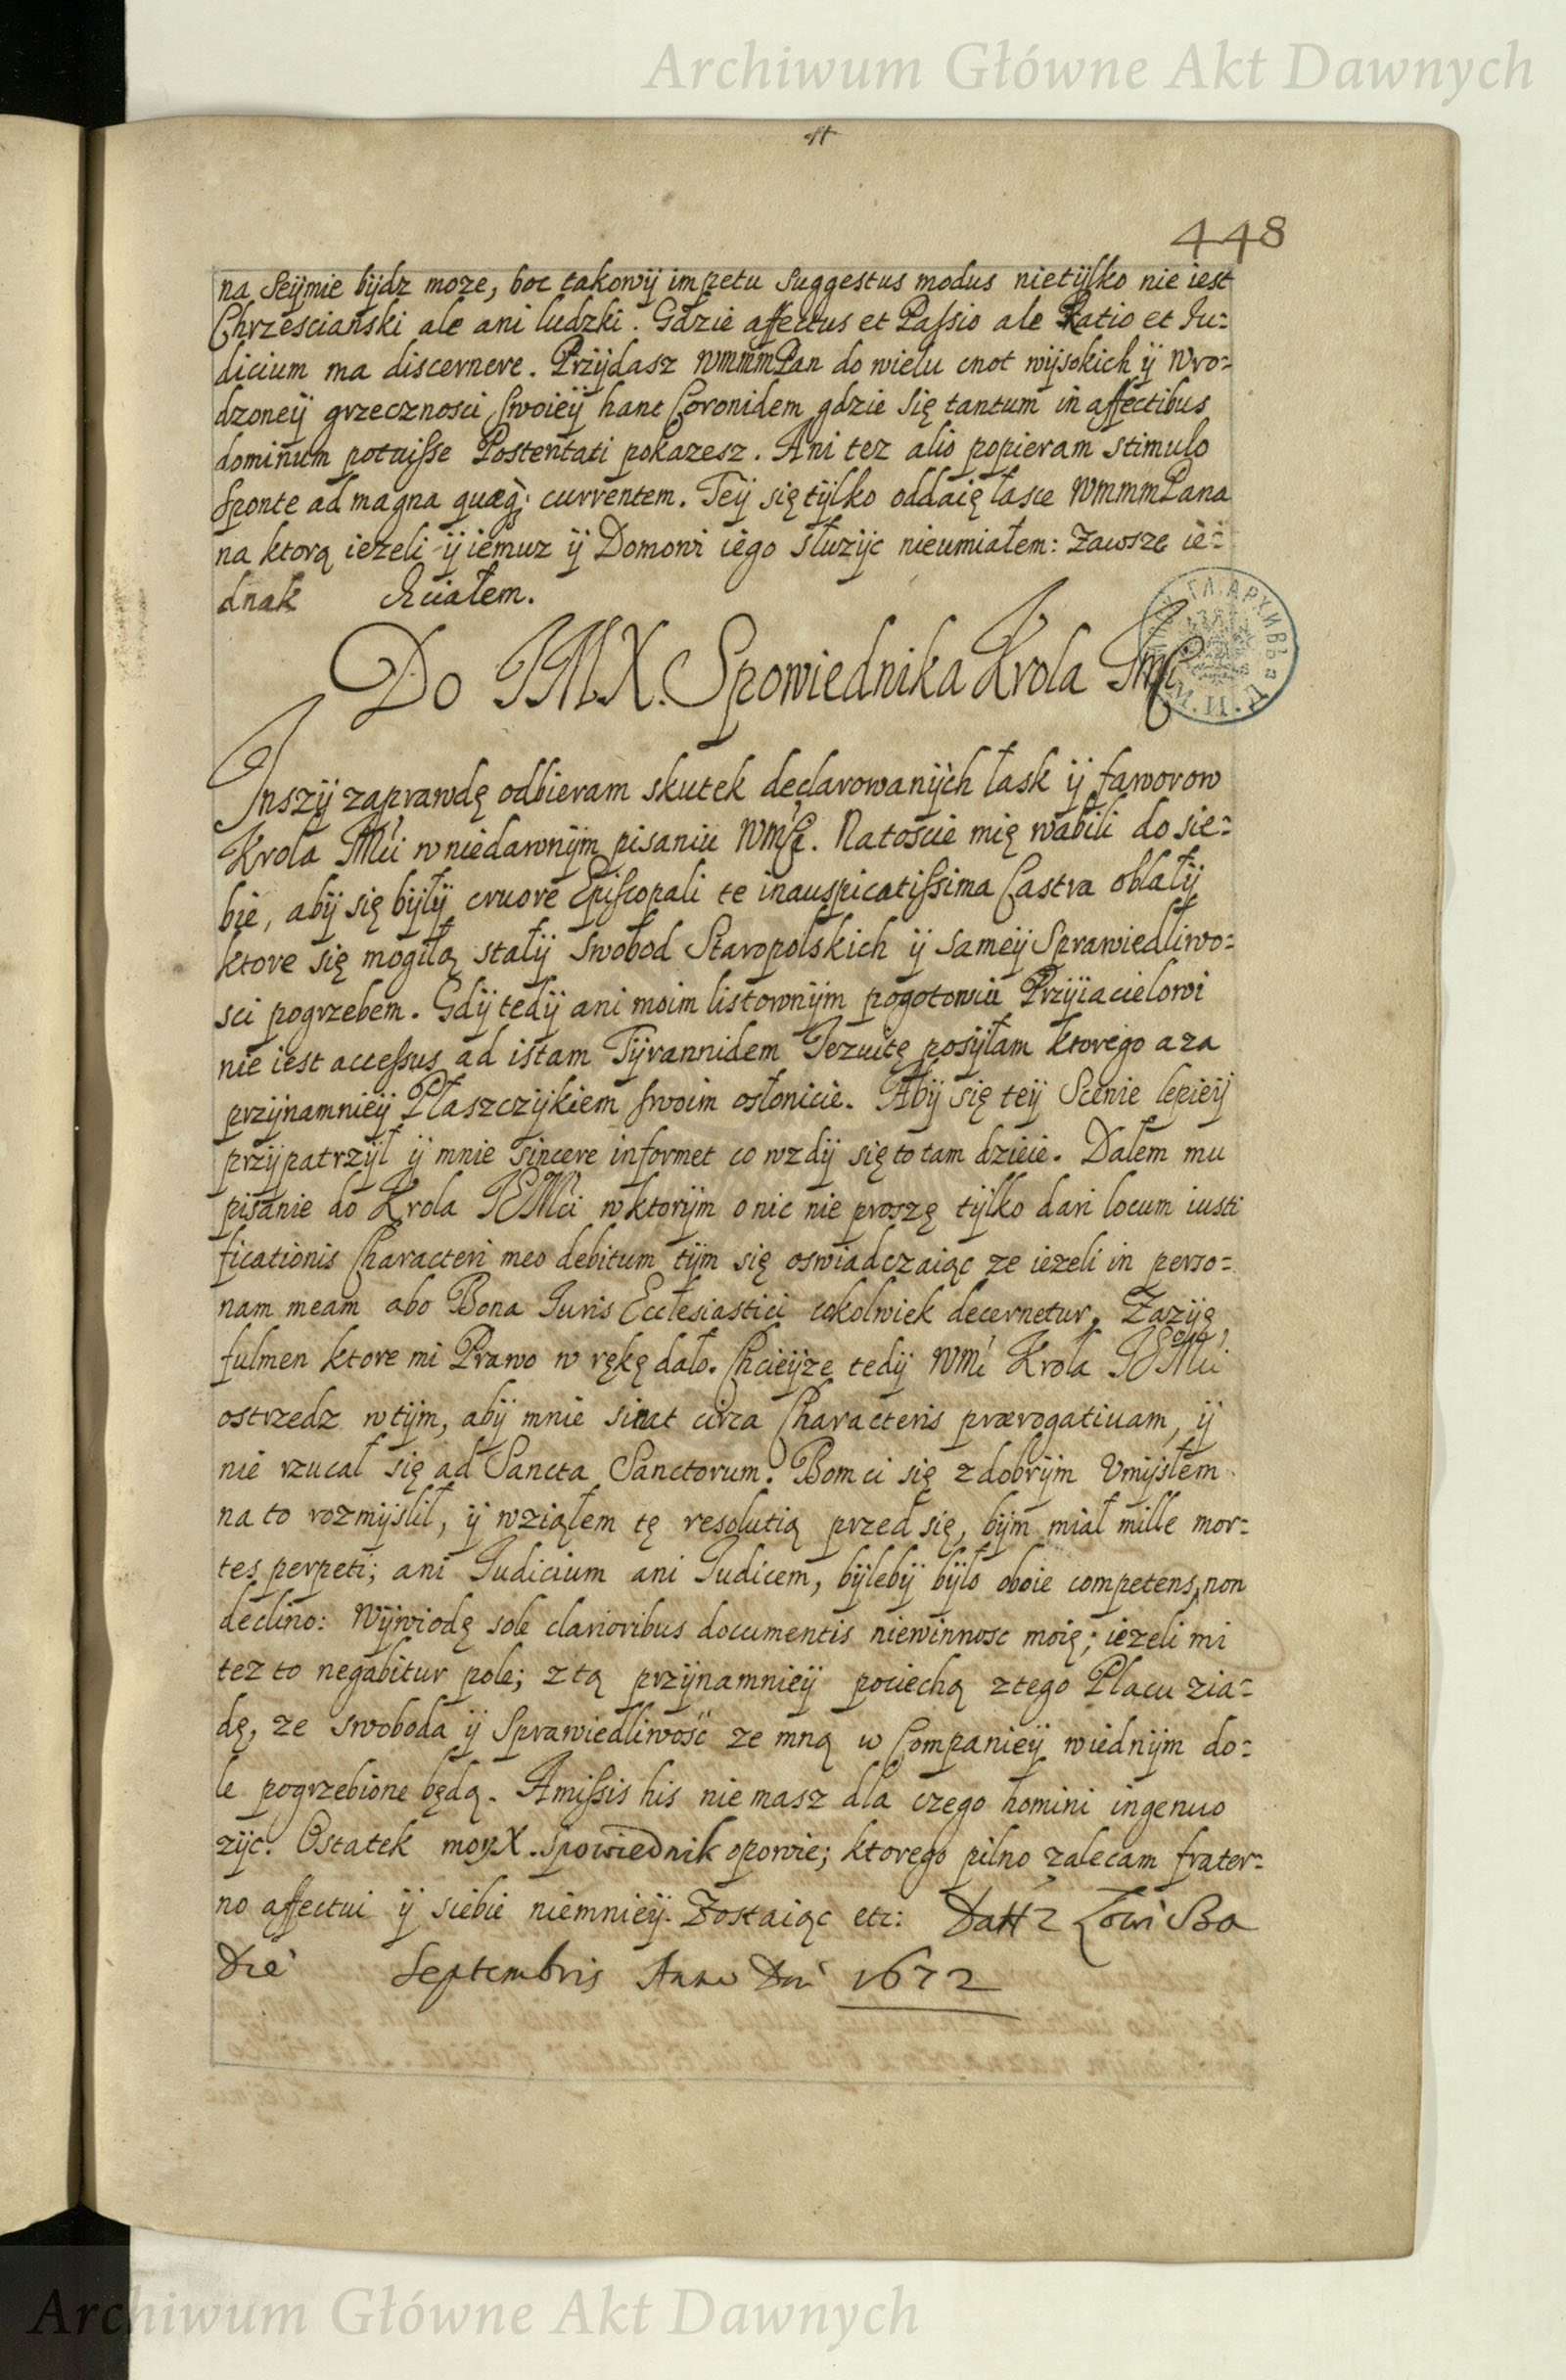 Archiwum Główne Akt Dawnych
448
na Seijmie bijdz moze, boc takowij impetu suggestus modus nietijlko nie iest
Chrzescianski ale ani ludzki. Gdzie affectus et Passio ale Ratio et Iu-
dicium ma discernere. Przijdasz WmmmPan do wielu cnot wijsokich ij wro-
dzoneij grzecznosci swoieij hanc Coronidem gdzie się tantum in affectibus
dominum potuisse Postentati pokazesz. Ani tez alio popieram stimulo
sponte ad magna quæq; currentem. Teij się tijlko oddaię łasce WmmmPana
na ktorą iezeli ij iemuz ij Domowi iego słuzijc nieumiałem: Zawsze ie-
dnak chciałem.
Do JMX. Spowiednika Krola Jmści
Inszij zaprawdę odbieram skutek declarowanijch łask ij faworow
Krola JMci w niedawnijm pisaniu WmSci. Natoscie mię wabili do sie-
bie, abij się bijłij cruore Episcopali te inauspicatissima Castra oblałij
ktore się mogiłą stałij swobod Staropolskich ij sameij Sprawiedliwo-
sci pogrzebem. Gdij tedij ani moim listownijm pogotowiu Przijiacielowi
nie iest accessus ad istam Tijrannidem Jezuitę posijłam ktorego aza
przijnamnieij Płaszczijkiem swoim osłonicie. Abij się teij Scenie lepieij
przijpatrzijł ij mnie sincere informet co wzdij się to tam dzieie. Dałem mu
pisanie do Krola JEMci w ktorijm o nic nie proszę tijlko dari locum iusti
ficationis Characteri meo debitum tijm się oswiadczaiąc ze iezeli in perso-
nam meam abo Bona Iuris Ecclesiastici cokolwiek decernetur, Zazijię
fulmen ktore mi Prawo w rękę dało. Chcieijze tedij Wmć Krola JEoMci
ostrzedz w tijm, abij mnie sinat circa Characteris prærogativam, ij
nie rzucał się ad Sancta Sanctorum. Bom ci się z dobrijm Vmijsłem
na to rozmijslił, ij wziąłem tę resolutią przed się, bijm miał mille mor-
tes perpeti; ani Iudicium ani Iudicem, bijlebij bijło oboie competens, non
declino: Wijwiodę sole clarioribus documentis niewinnosc moię; iezeli mi
tez to negabitur pole; z tą przijnamnieij pociechą z tego Placu zia-
dę, ze swoboda ij Sprawiedliwość ze mną w Companieij wiednijm do-
le pogrzebione będą. Amissis his nie masz dla czego homini ingenuo
zijc. Ostatek moy X. spowiednik opowie; ktorego pilno zalecam frater-
no affectui ij siebie niemnieij. Zostaiąc etc: Datt z Łowicza
Die Septembris Anno Dni 1672
Archiwum Główne Akt Dawnych